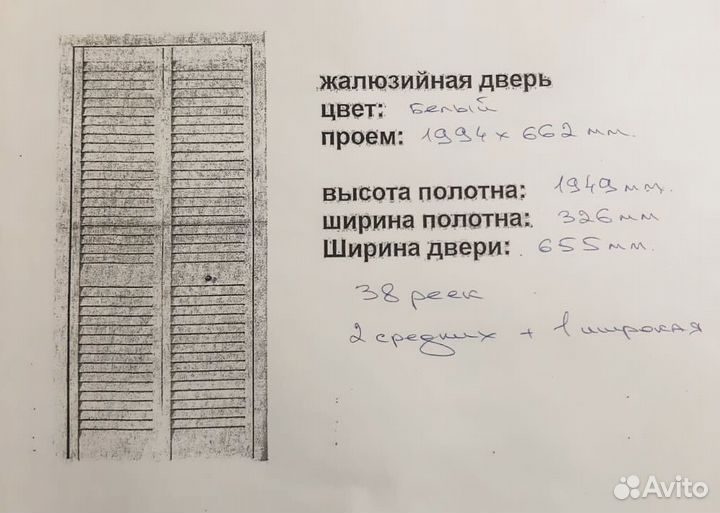 жалюзийная дверь
цвет: белый
проем: 1994 х 662 мм.
высота полотна: 1949 мм.
ширина полотна: 326 мм
Ширина двери: 655 мм.
38 реек
2 средних + 1 широкая
Avito